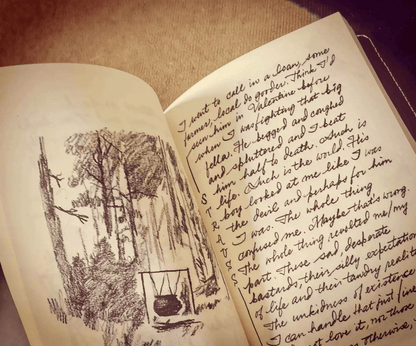 I went to call in a loan, some
farmer, local do gooder. Think I'd
seen him in Valentine before
when I was fighting that big
fella. He begged and coughed
and spluttered and I beat
him half to death. Such is
life. Such is the world. His
boy looked at me like I was
the devil and perhaps for him
I was. The whole thing
confused me. Maybe that's wrong.
The whole thing revolted me/my
part. These sad desperate
bastards, their silly expectation
of life and their tawdry realit
The unkindness of existence
I can handle that just fine
not love it, nor those
otherwise,
STRAUSS